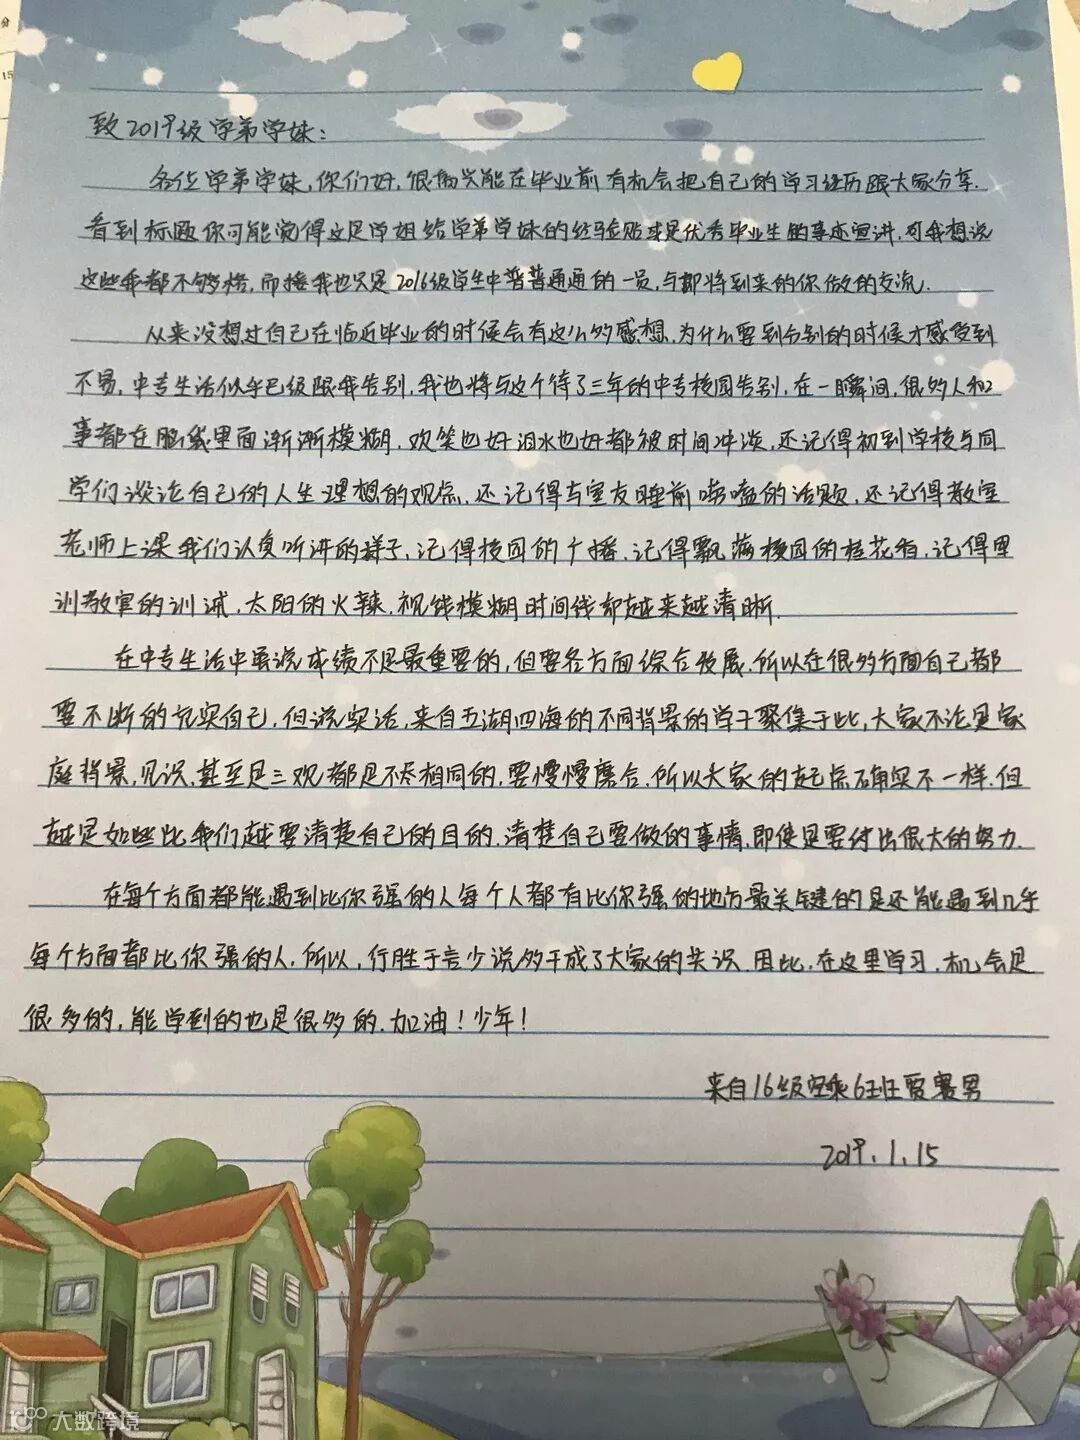 分
15
致2019级学弟学妹：
各位学弟学妹，你们好，很高兴能在毕业前有机会把自己的学习经历跟大家分享.
看到标题你可能觉得这是学姐给学弟学妹的经验贴或是优秀毕业生的事迹宣讲，可我想说
这些我都不够格，而接我也只是2016级学生中普普通通的一员，与即将到来的你做的交流.
从来没想过自己在临近毕业的时候会有这么多感想，为什么要到分别的时候才感受到
不易，中专生活似乎已级跟我告别，我也将与这个待了三年的中专校园告别，在一瞬间，很多人和
事都在脑线里面渐渐模糊，欢笑也好泪水也好都被时间冲淡，还记得初到学校与同
学们谈论自己的人生理想的观点，还记得与室友睡前唠嗑的话题，还记得教室
老师上课我们认真听讲的样子，记得校园的广播，记得飘满校园的桂花香，记得军
训教官的训诫，太阳的火辣，视线模糊时间线却越来越清晰.
在中专生活中虽说成绩不是最重要的，但要各方面综合发展，所以在很多方面自己都
要不断的充实自己，但说实话，来自五湖四海的不同背景的学子聚集于此，大家不论是家
庭背景，见识，甚至是三观都是不尽相同的，要慢慢磨合，所以大家的起点确实不一样.但
越是如此我们越要清楚自己的目的，清楚自己要做的事情，即使是要付出很大的努力.
在每个方面都能遇到比你强的人每个人都有比你强的地方最关键的是还能遇到几乎
每个方面都比你强的人，所以，行胜于言少说多干成了大家的共识，因此，在这里学习，机会是
很多的，能学到的也是很多的.加油！少年！
来自16级空乘6班贾赛男
2019.1.15
大数跨境